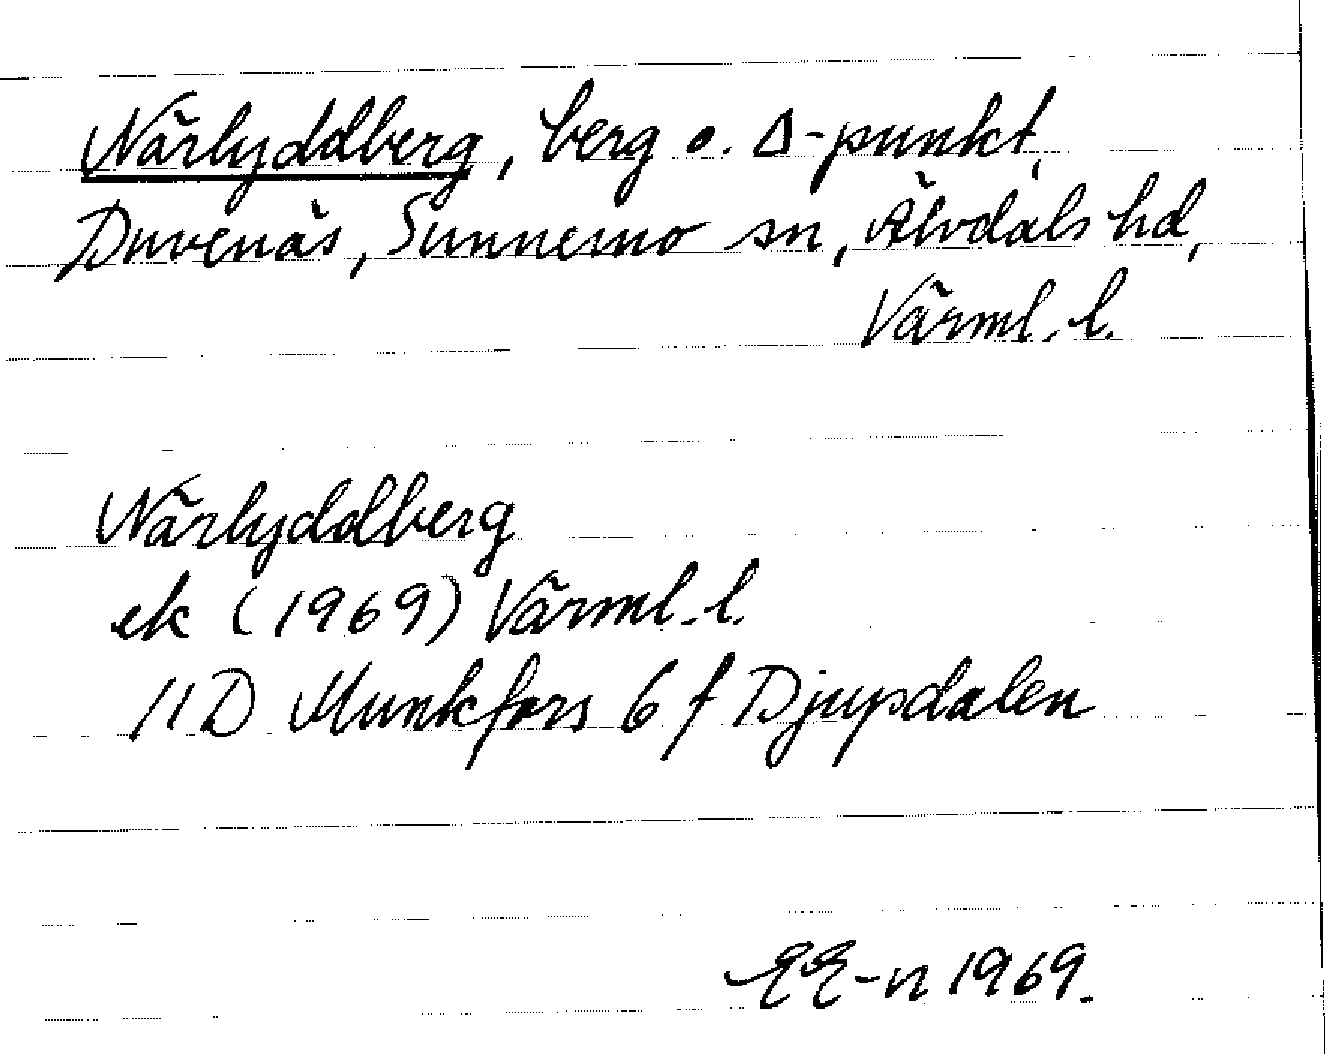 Närlyddberg, berg o. Δ-punkt,
Duvenäs, Sunnemo sn, Älvdals hd,
Värml. l.
Närlyddberg
ek (1969) Värml. l.
11D Munkfors 6 f Djupdalen
EE-n 1969.